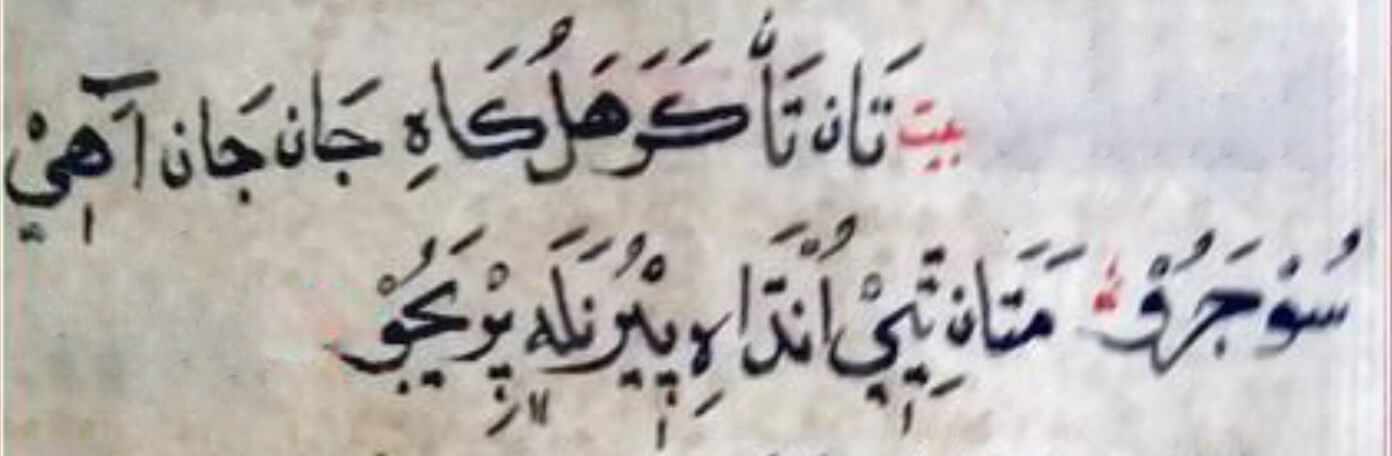 بيت تَان تَا كَرَ هَلُ كَاهِ جَان جَان آهِيْ
سُوْجَرُوْ مَتَانِ تٖيْ اُنْدَاهِ پٖيْرُ نَلَهٖ پِرْيَجُوْ